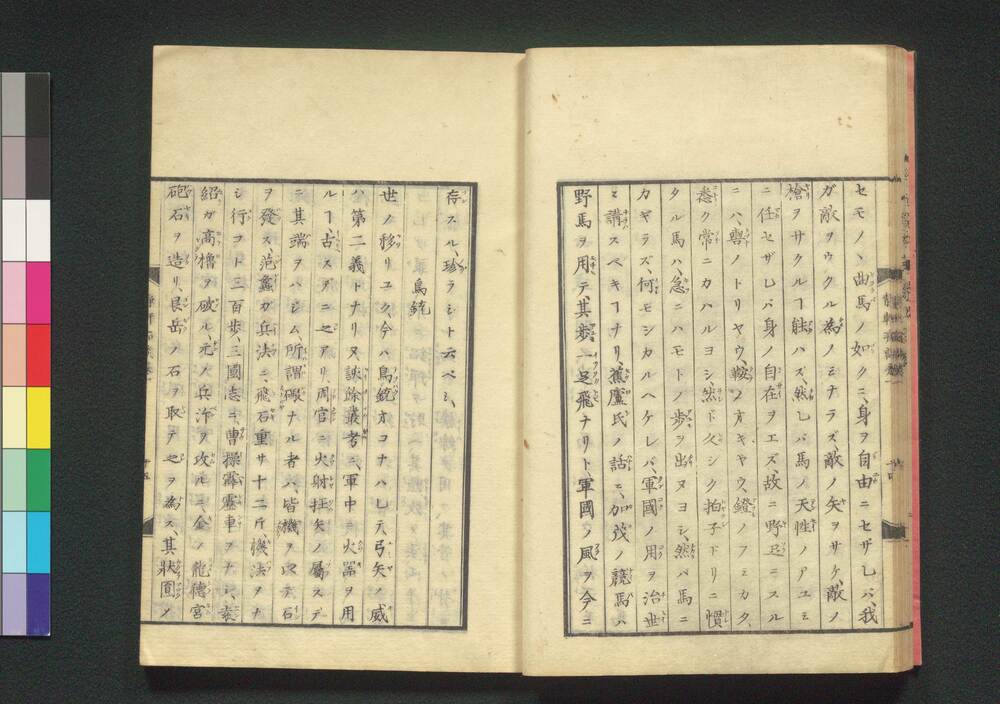 セモノヽ曲馬ノ如クニ、身ヲ自由ニセザレバ、我
ガ敵ヲウクル為ノミナラズ、敵ノ矢ヲサケ、敵ノ
槍ヲサクルヿ能ハズ、然レバ馬ノ天性ノアユミ
ニ任セザレバ身ノ自在ヲエズ、故ニ野足ニスル
ニハ、轡ノトリヤウ、鞍ノオキヤウ、鐙ノフミカタ、
悉ク常ニカハルヨシ、然ドモ久シク拍子ドリニ慣
タル馬ハ、急ニハモトノ歩ヲ出ヌヨシ、然バ馬ニ
カギラズ、何モシカルヘケレバ、軍國ノ用ヲ治世
ニ講スベキヿナリ、蕉廬氏ノ話ニ、加茂ノ競馬ハ
野馬ヲ用テ、其歩一足飛ナリト、軍國ノ風ヲ今ニ
存スル、珍ラシト云ベシ、
鳥銃
世ノ移リユク、今ハ鳥銃オコナハレテ、弓矢ノ威
ハ第二義トナリヌ、陔餘叢考ニ、軍中ニ火器ヲ用
ルヿ、古スデニ之アリ、周官ニ火射枉矢ノ屬スデ
ニ其端ヲハジム、所謂礮ナル者ハ、皆機ヲ以テ石
ヲ發ス、范蠡ガ兵法ニ、飛石重サ十二斤、機法ヲナ
シ行コト三百歩、三國志ニ曹操霹靂車ヲナシ、袁
紹ガ高櫓ヲ破ル、元ノ兵汴ヲ攻ルニ、金ノ龍德宮
砲石ヲ造リ、艮岳ノ石ヲ取テ之ヲ為ス、其狀圓ノ